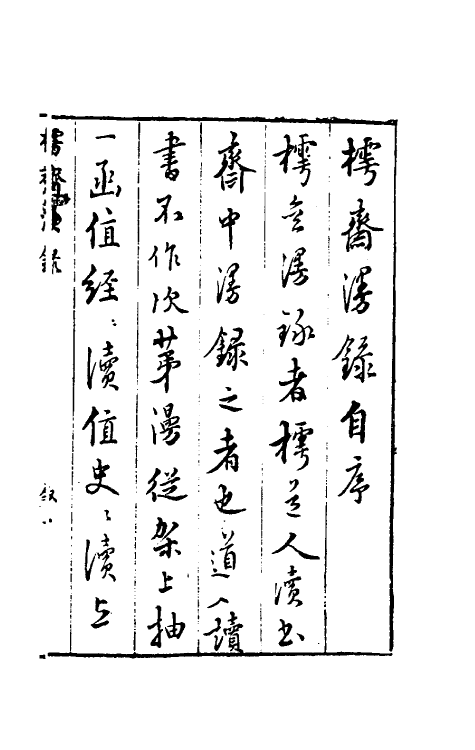 樗齋漫錄自序
樗齋漫錄者樗道人讀書
齋中漫錄之者也道人讀
書不作次第漫從架上抽
一函值經〻讀值史〻讀與
樗齋漫錄
敘 八